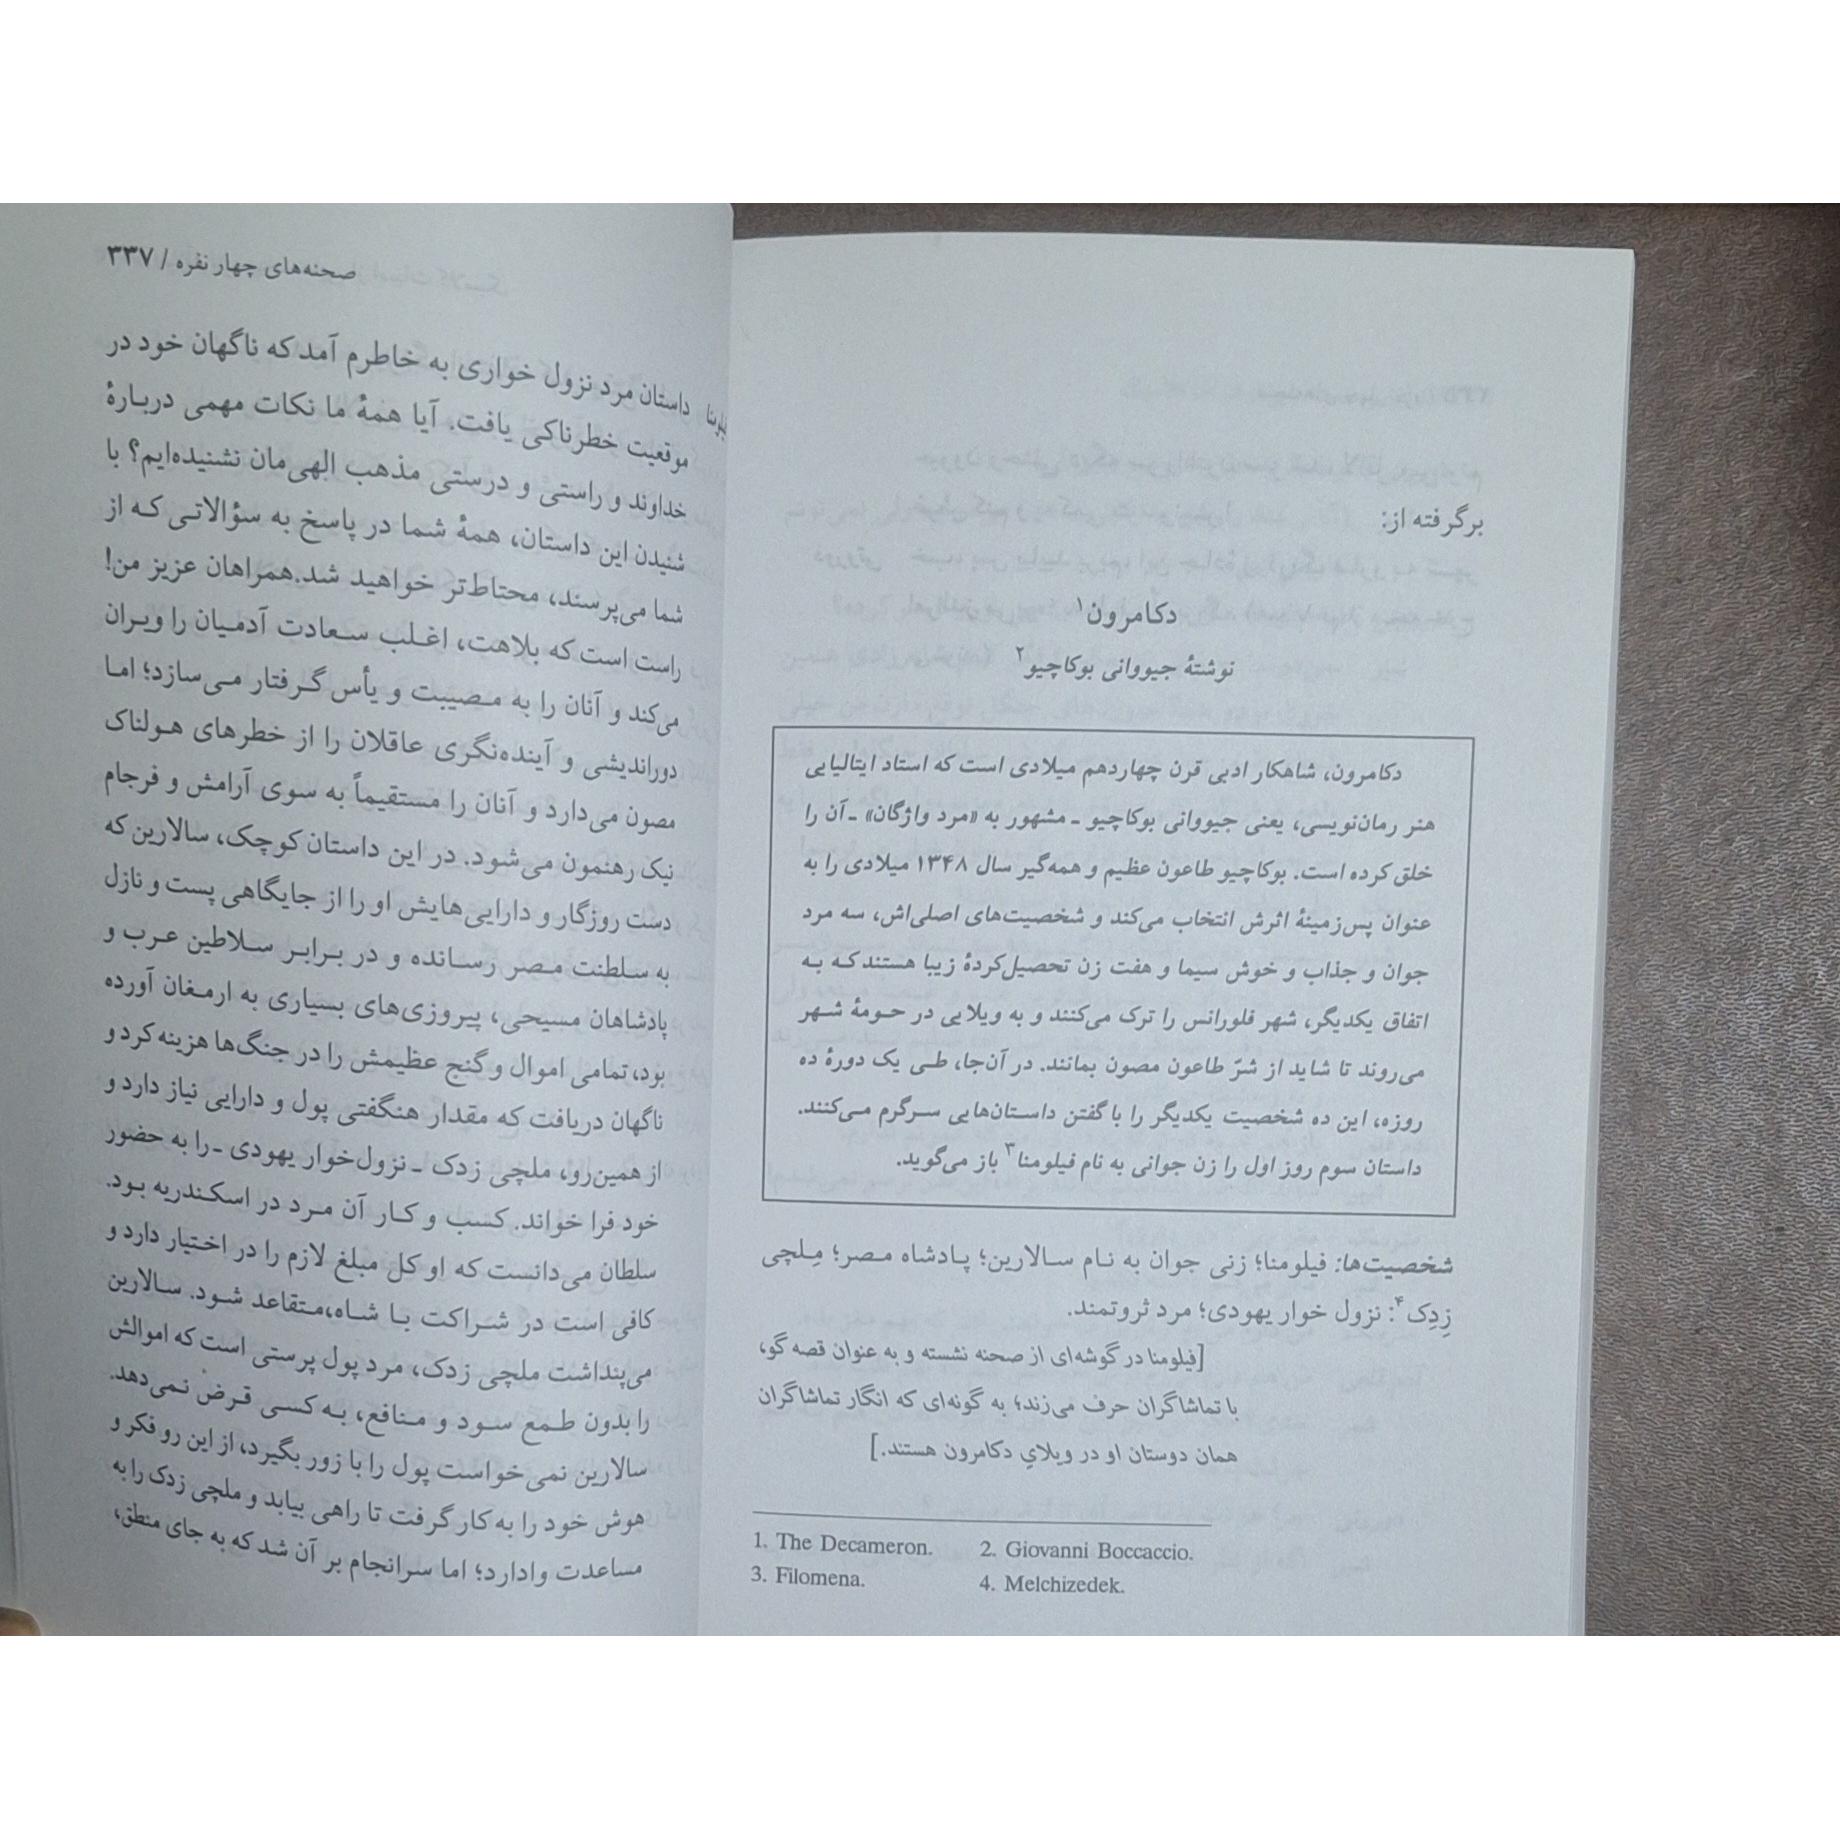 برگرفته از:
دکامرون۱
نوشتهٔ جیووانی بوکاچیو۲
دکامرون، شاهکار ادبی قرن چهاردهم میلادی است که استاد ایتالیایی
هنر رمان‌نویسی، یعنی جیووانی بوکاچیو ـ مشهور به «مرد واژگان» ـ آن را
خلق کرده است. بوکاچیو طاعون عظیم و همه‌گیر سال ۱۳۴۸ میلادی را به
عنوان پس‌زمینهٔ اثرش انتخاب می‌کند و شخصیت‌های اصلی‌اش، سه مرد
جوان و جذاب و خوش سیما و هفت زن تحصیل‌کردهٔ زیبا هستند که به
اتفاق یکدیگر، شهر فلورانس را ترک می‌کنند و به ویلایی در حومهٔ شهر
می‌روند تا شاید از شرّ طاعون مصون بمانند. در آن‌جا، طی یک دورهٔ ده
روزه، این ده شخصیت یکدیگر را با گفتن داستان‌هایی سرگرم می‌کنند.
داستان سوم روز اول را زن جوانی به نام فیلومنا۳ باز می‌گوید.
شخصیت‌ها: فیلومنا؛ زنی جوان به نام سالارین؛ پادشاه مصر؛ مِلچی
زِدِک۴: نزول خوار یهودی؛ مرد ثروتمند.
[فیلومنا در گوشه‌ای از صحنه نشسته و به عنوان قصه گو،
با تماشاگران حرف می‌زند؛ به گونه‌ای که انگار تماشاگران
همان دوستان او در ویلایِ دکامرون هستند.]
1. The Decameron. 2. Giovanni Boccaccio.
3. Filomena. 4. Melchizedek.
صحنه‌های چهار نفره / ۳۳۷
داستان مرد نزول خواری به خاطرم آمد که ناگهان خود در
موقعیت خطرناکی یافت. آیا همهٔ ما نکات مهمی دربارهٔ
خداوند و راستی و درستی مذهب الهی‌مان نشنیده‌ایم؟ با
شنیدن این داستان، همهٔ شما در پاسخ به سؤالاتی که از
شما می‌پرسند، محتاط‌تر خواهید شد.همراهان عزیز من!
راست است که بلاهت، اغلب سعادت آدمیان را ویران
می‌کند و آنان را به مصیبت و یأس گرفتار می‌سازد؛ اما
دوراندیشی و آینده‌نگری عاقلان را از خطرهای هولناک
مصون می‌دارد و آنان را مستقیماً به سوی آرامش و فرجام
نیک رهنمون می‌شود. در این داستان کوچک، سالارین که
دست روزگار و دارایی‌هایش او را از جایگاهی پست و نازل
به سلطنت مصر رسانده و در برابر سلاطین عرب و
پادشاهان مسیحی، پیروزی‌های بسیاری به ارمغان آورده
بود، تمامی اموال و گنج عظیمش را در جنگ‌ها هزینه کرد و
ناگهان دریافت که مقدار هنگفتی پول و دارایی نیاز دارد و
از همین‌رو، ملچی زدک ـ نزول‌خوار یهودی ـ را به حضور
خود فرا خواند. کسب و کار آن مرد در اسکندریه بود.
سلطان می‌دانست که او کل مبلغ لازم را در اختیار دارد و
کافی است در شراکت با شاه،متقاعد شود. سالارین
می‌پنداشت ملچی زدک، مرد پول پرستی است که اموالش
را بدون طمع سود و منافع، به کسی قرض نمی‌دهد.
سالارین نمی‌خواست پول را با زور بگیرد، از این رو فکر و
هوش خود را به کار گرفت تا راهی بیابد و ملچی زدک را به
مساعدت وادارد؛ اما سرانجام بر آن شد که به جای منطق،